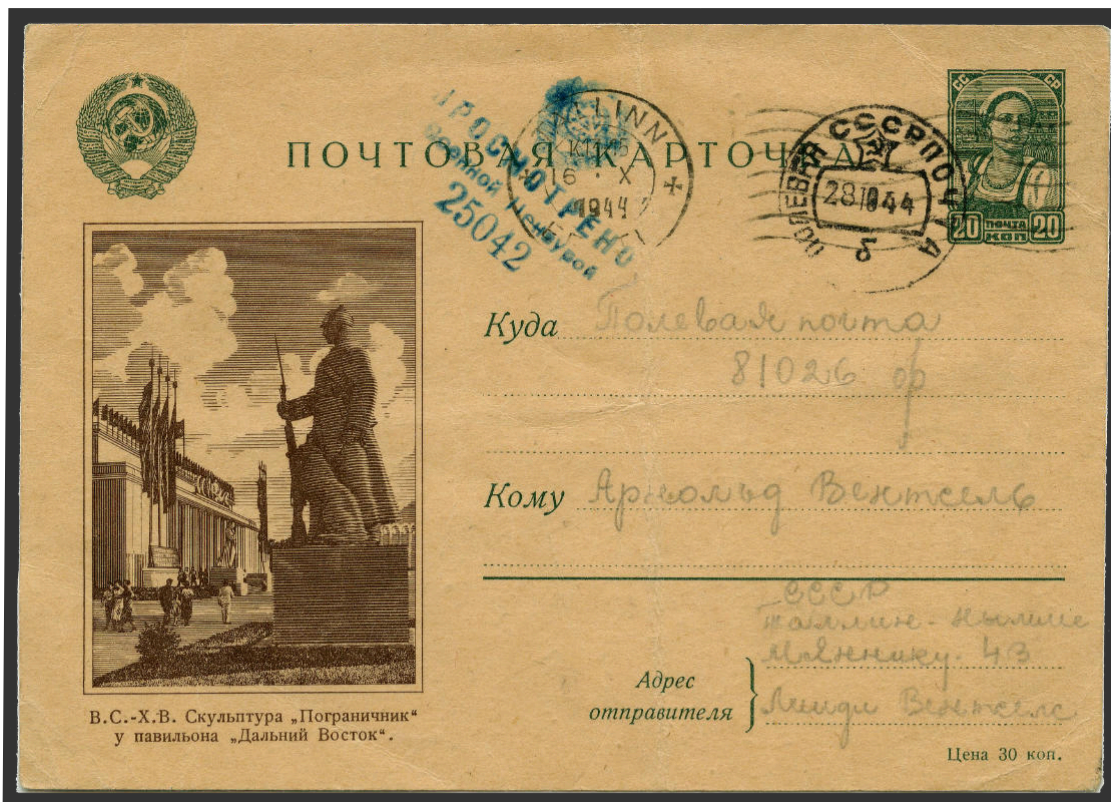 ПОЧТОВАЯ КАРТОЧКА
ПРОСМОТРЕНО
Военной Цензурой
25042
TALLINN
16 · X
1944
СССР
ПОЛЕВАЯ ПОЧТА
28 10 44
б
СС СР
20 ПОЧТА 20
КОП
Куда Полевая почта
81026
Кому Арнольд Вентсель
СССР
Таллин - Нымме
Мяннику. 43
Адрес
отправителя
Линди Вентсель
В.С.-Х.В. Скульптура „Пограничник“
у павильона „Дальний Восток“.
Цена 30 коп.